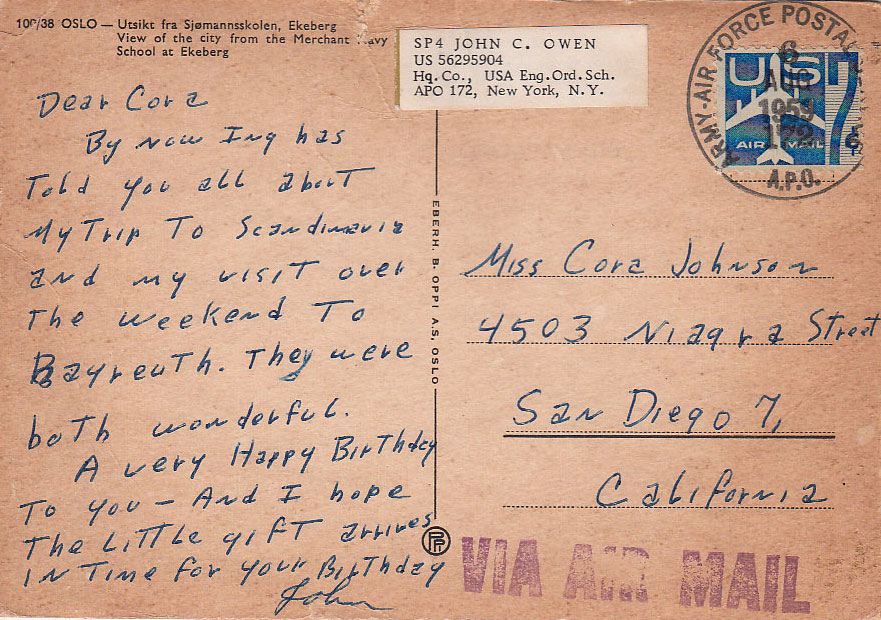 10 /38 OSLO — Utsikt fra Sjømannsskolen, Ekeberg
View of the city from the Merchant Navy
School at Ekeberg
SP4 JOHN C. OWEN
US 56295904
Hq. Co., USA Eng. Ord. Sch.
APO 172, New York, N.Y.
ARMY-AIR FORCE POSTAL
6
AUG
1959
172
A.P.O.
US
7¢
AIR MAIL
Dear Cora
By now Ing has
Told you all about
My Trip To Scandinavia
and my visit over
The weekend To
Bayreuth. They were
both wonderful.
A very Happy Birthday
To you — And I hope
The Little gift arrives
in Time for your Birthday
John
EBERH. B. OPPI A.S, OSLO
Miss Cora Johnson
4503 Niagra Street
San Diego 7,
California
VIA AIR MAIL